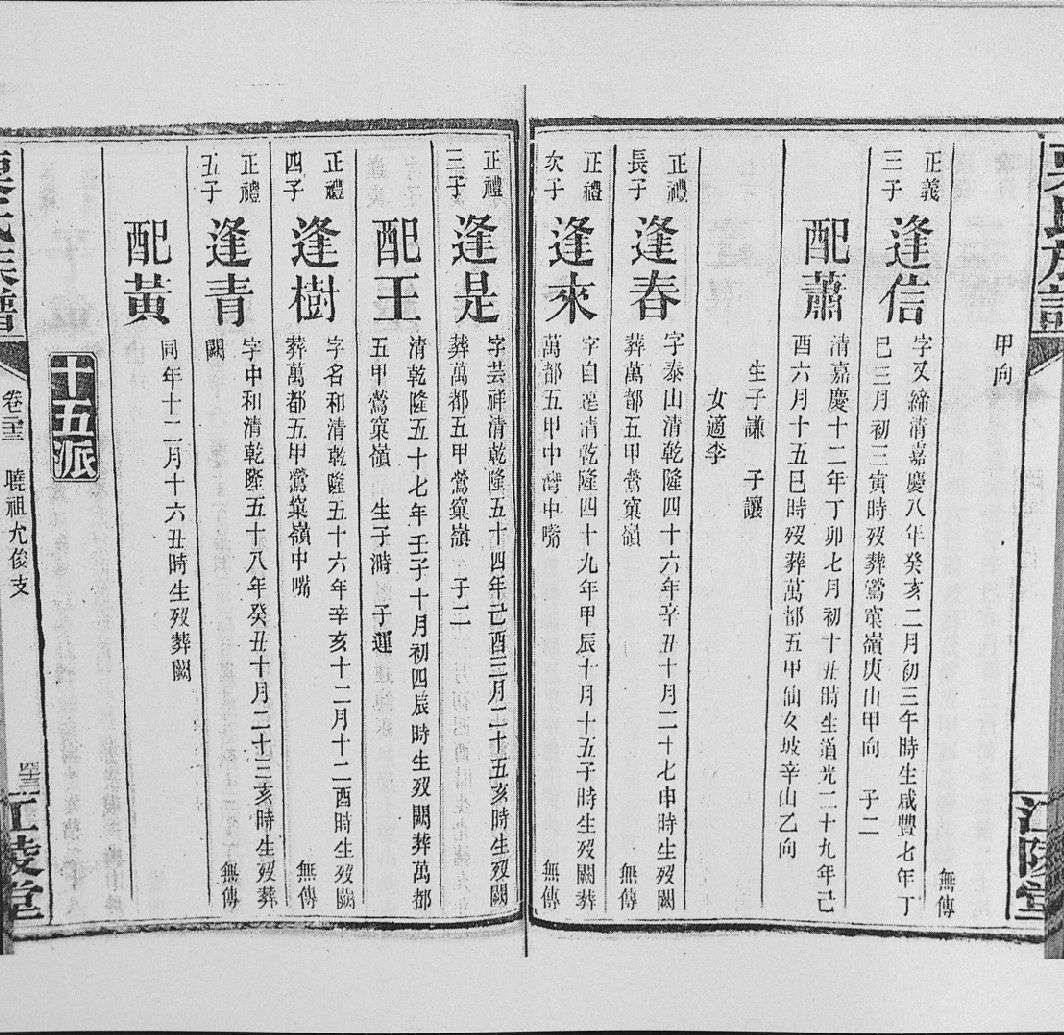 甲向
無傳
正義
三子
逢信
字又締清嘉慶八年癸亥二月初三午時生咸豐七年丁
巳三月初三寅時歿葬鶯窠嶺庚山甲向 子二
配蕭
清嘉慶十二年丁卯七月初十丑時生道光二十九年己
酉六月十五巳時歿葬萬都五甲仙女坡辛山乙向
生子謙 子讓
女適李
正禮
長子
逢春
字泰山清乾隆四十六年辛丑十月二十七申時生歿闕
葬萬都五甲鶯窠嶺
無傳
正禮
次子
逢來
字自遠清乾隆四十九年甲辰十月十五子時生歿闕葬
萬都五甲中灣中嘴
無傳
正禮
三子
逢是
字芸祥清乾隆五十四年己酉三月二十五亥時生歿闕
葬萬都五甲鶯窠嶺 子二
配王
清乾隆五十七年壬子十月初四辰時生歿闕葬萬都
五甲鶯窠嶺 生子溡 子運
正禮
四子
逢樹
字名和清乾隆五十六年辛亥十二月十二酉時生歿闕
葬萬都五甲鶯窠嶺中嘴
無傳
正禮
五子
逢青
字中和清乾隆五十八年癸丑十月二十三亥時生歿葬
闕
無傳
配黃
同年十二月十六丑時生歿葬闕
十五派
族譜
卷三
曉祖允俊支
江陵堂
江陵堂